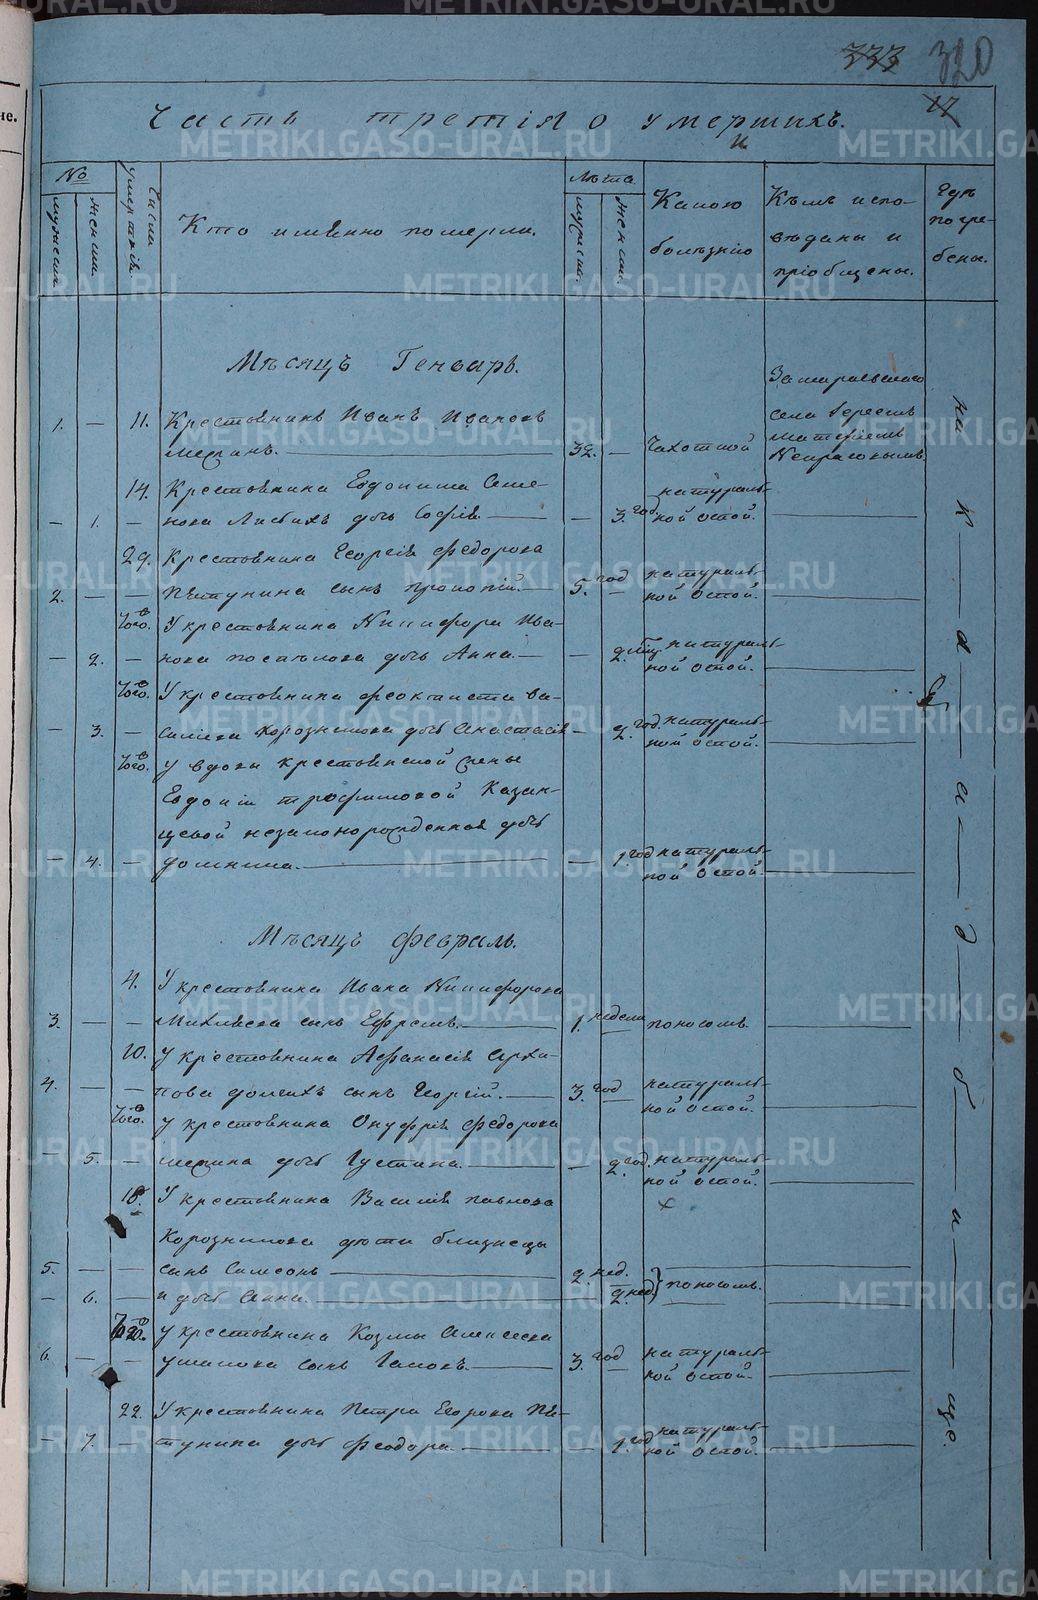 333 320
17
Часть третія о умершихъ.
№
мужеска.
женска.
Числа умертвія.
Кто именно померли.
Лѣта
мужеск.
женск.
Какою
болѣзнію
Кѣмъ испо-
вѣданы и
пріобщены.
Гдѣ
погре-
бены.
Мѣсяцъ Генварь.
1. — 11. Крестьянинъ Иванъ Ивановъ
32. — Чахоткой
села Іереемъ
14. Крестьянина Евдокима Семе-
— 1. — нова дочь Софія. — — 3. год. натураль-
ной оспой.
29. Крестьянина Георгія Федорова
2. — — Пѣтунина сынъ Прокопій. — 5. год натураль-
ной оспой.
того. У крестьянина Никифора Ива-
— 2. — нова дочь Анна. — — 2. натураль-
ной оспой.
того. У крестьянина Феоктиста Ва-
— 3. — дочь Анастасія — 2. год. натураль-
ной оспой.
того. у вдовы крестьянской жены
Евдокіи Трофимовой Казан-
цевой незаконорожденная дочь
— 4. — Домника. — — 1. год натураль-
ной оспой.
на кладбище.
Мѣсяцъ Февраль.
4. У крестьянина Ивана Никифорова
3. — — сынъ Ефремъ. — 1. недели поносомъ.
10. у крестьянина Афанасія Архи-
4. — — пова сынъ Георгій. — 3. год натураль-
ной оспой.
того. у крестьянина Онуфрія Федорова
— 5. — дочь Густина. — — 2. год. натураль-
ной оспой.
18. У крестьянина Василія Павлова
дѣти близнецы
5. — — сынъ Симеонъ — 2. нед.
— 6. — и дочь Анна. — 2. нед. поносомъ.
20. у крестьянина Козмы Алексеева
6. — — Ушакова сынъ — 3. год натураль-
ной оспой.
22. У крестьянина Петра Егорова Пѣ-
— 7. — тунина дочь Феодора. — — 1. год натураль-
ной оспой.
METRIKI.GASO-URAL.RU